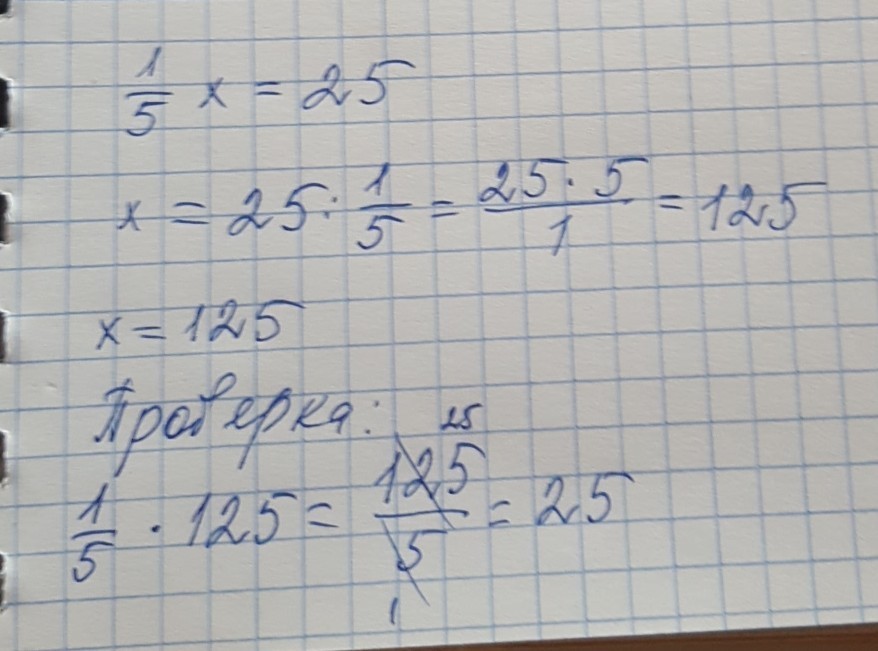 1/5 x = 25
x = 25 : 1/5 = 25 · 5/1 = 125
x = 125
Проверка:
1/5 · 125 = 125/5 = 25
25
1